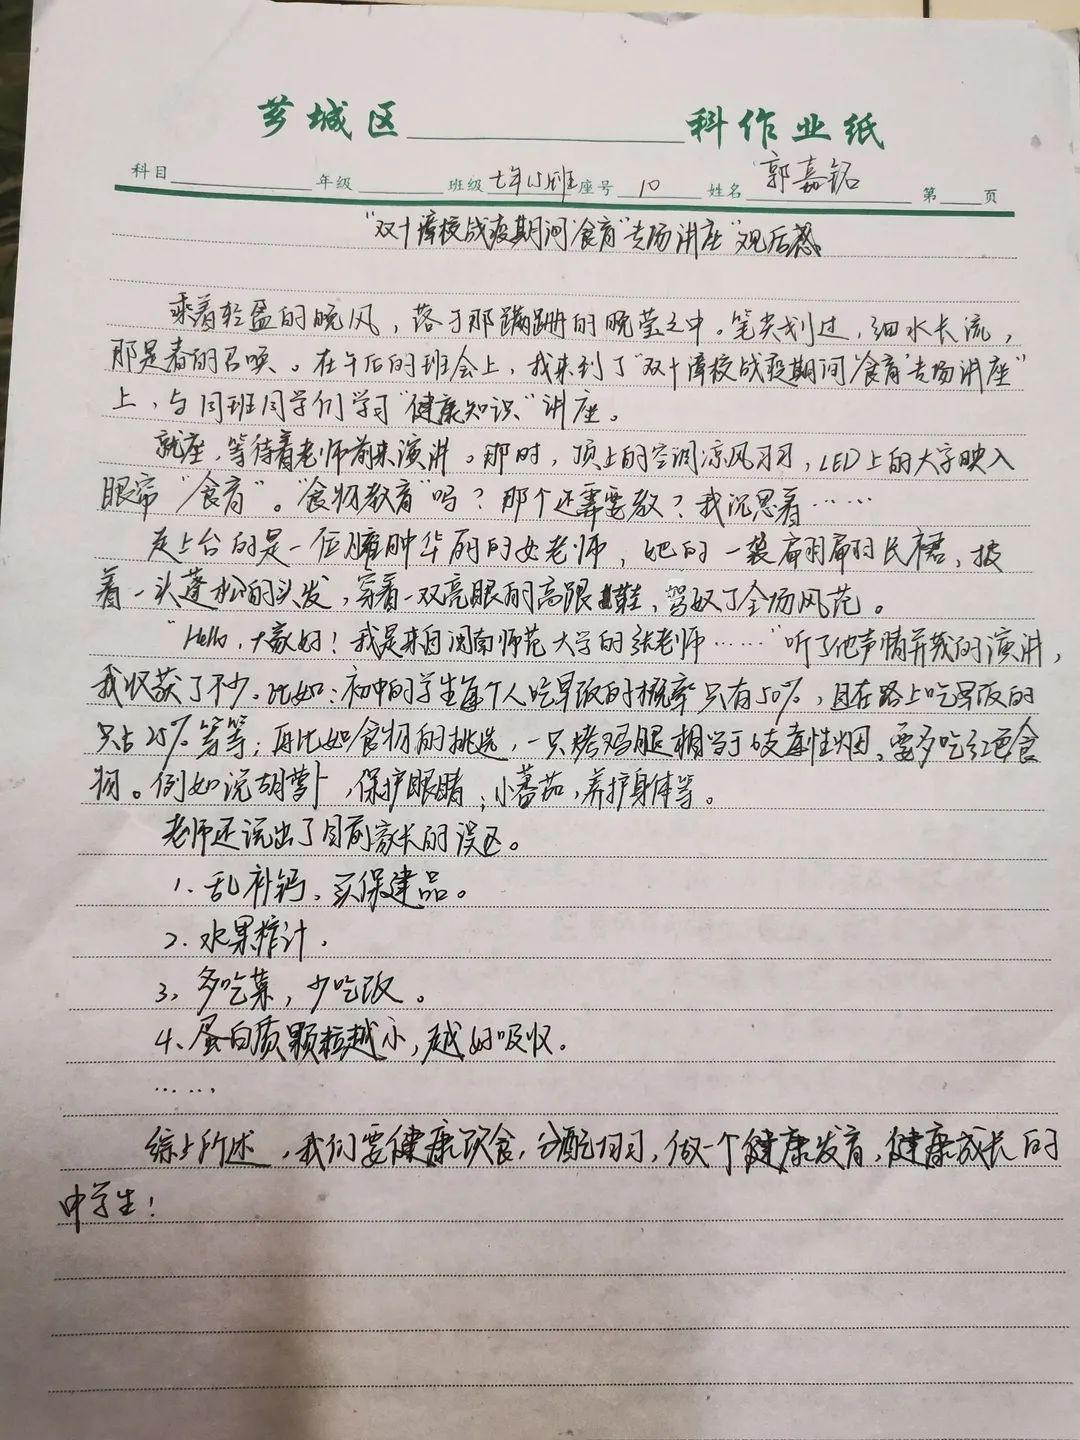 芗城区 科作业纸
科目 年级 班级 七年 班 座号 10 姓名 郭嘉铭 第 页
"双十漳校战疫期间'食育'专场讲座"观后感
乘着轻盈的晚风，落于那蹒跚的晚莹之中。笔尖划过，细水长流，
那是春的召唤。在午后的班会上，我来到了"双十漳校战疫期间'食育'专场讲座"
上，与同班同学们学习"健康知识"讲座。
就座，等待着老师前来演讲。那时，顶上的空调凉风习习，LED上的大字映入
眼帘"食育"。"食物教育"吗？那个还需要教？我沉思着……
走上台的是一位臃肿华丽的女老师，她的一袭扁羽扁羽长裙，披
着一头蓬松的头发，穿着一双亮眼的高跟鞋，驾奴了全场风范。
"Hello，大家好！我是来自闽南师范大学的张老师……"听了他声情并茂的演讲，
我收获了不少。比如：初中的学生每个人吃早饭的概率只有50%，且在路上吃早饭的
只占25%等等；再比如食物的挑选，一只烤鸡腿相当于 支毒性烟、要多吃红色食
物。例如说胡萝卜，保护眼睛；小蕃茄，养护身体等。
老师还说出了目前家长的误区。
1、乱补钙、买保建品。
2、水果榨汁.
3、多吃菜，少吃饭。
4、蛋白质颗粒越小，越好吸收。
……
综上所述，我们要健康饮食，分配均匀，做一个健康发育，健康成长的
中学生！